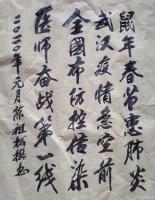 鼠年春节惠肺炎
武汉疫情急空前
全國布防控傳染
医师奋战第一线
二〇二〇年元月陈祖松撰书